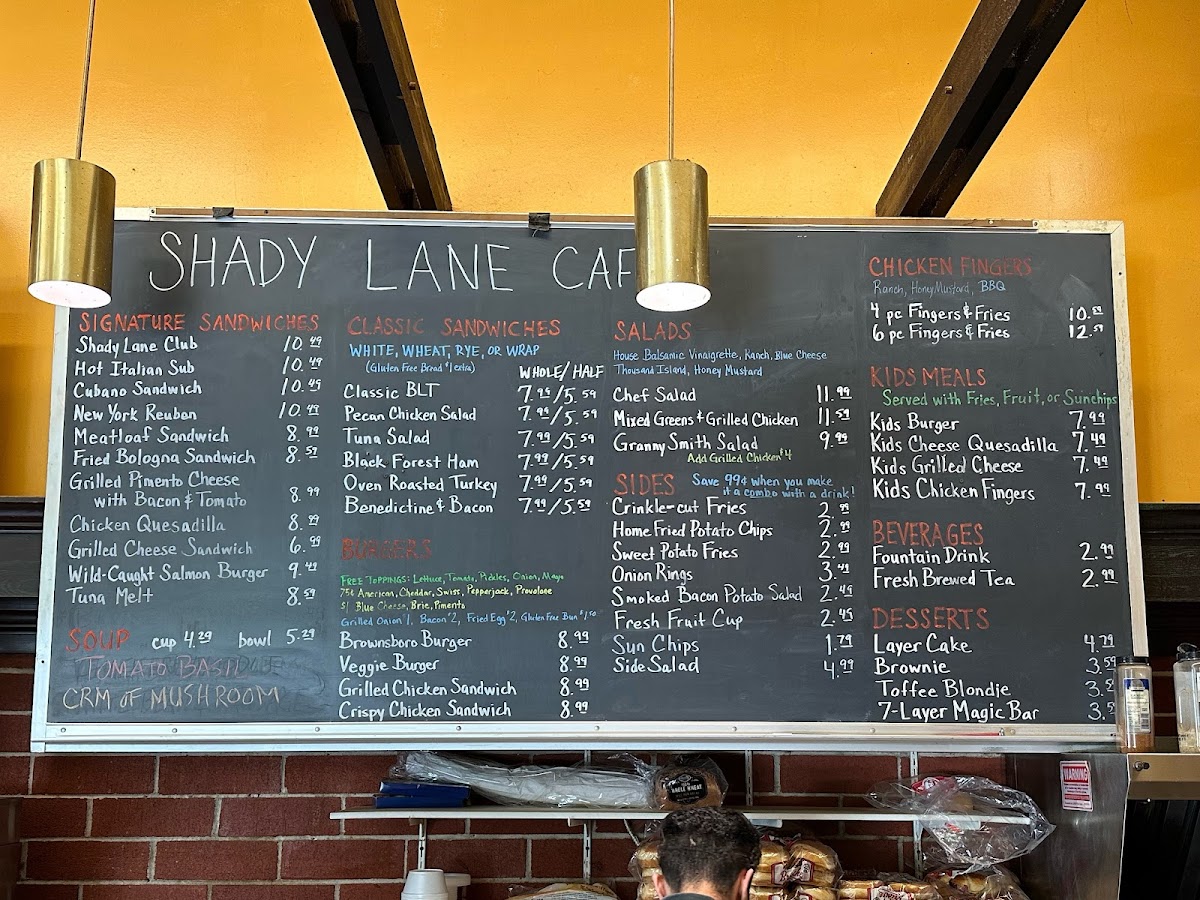 SHADY LANE CAF
SIGNATURE SANDWICHES
Shady Lane Club 10.49
Hot Italian Sub 10.49
Cubano Sandwich 10.49
New York Reuban 10.49
Meatloaf Sandwich 8.99
Fried Bologna Sandwich 8.59
Grilled Pimento Cheese
with Bacon & Tomato 8.99
Chicken Quesadilla 8.99
Grilled Cheese Sandwich 6.99
Wild-Caught Salmon Burger 9.49
Tuna Melt 8.59
SOUP cup 4.29 bowl 5.29
TOMATO BASIL
CRM OF MUSHROOM
CLASSIC SANDWICHES
WHITE, WHEAT, RYE, OR WRAP
(Gluten Free Bread $1 extra)
WHOLE/HALF
Classic BLT 7.99/5.59
Pecan Chicken Salad 7.99/5.59
Tuna Salad 7.99/5.59
Black Forest Ham 7.99/5.59
Oven Roasted Turkey 7.99/5.59
Benedictine & Bacon 7.99/5.59
BURGERS
FREE TOPPINGS: Lettuce, Tomato, Pickles, Onion, Mayo
75¢ American, Cheddar, Swiss, Pepperjack, Provolone
$1 Blue Cheese, Brie, Pimento
Grilled Onion $1, Bacon $2, Fried Egg $2, Gluten Free Bun $1.50
Brownsboro Burger 8.99
Veggie Burger 8.99
Grilled Chicken Sandwich 8.99
Crispy Chicken Sandwich 8.99
SALADS
House Balsamic Vinaigrette, Ranch, Blue Cheese
Thousand Island, Honey Mustard
Chef Salad 11.99
Mixed Greens & Grilled Chicken 11.59
Granny Smith Salad 9.99
Add Grilled Chicken $4
SIDES Save 99¢ when you make
it a combo with a drink!
Crinkle-cut Fries 2.99
Home Fried Potato Chips 2.99
Sweet Potato Fries 2.99
Onion Rings 3.49
Smoked Bacon Potato Salad 2.45
Fresh Fruit Cup 2.45
Sun Chips 1.79
Side Salad 4.99
CHICKEN FINGERS
Ranch, Honey Mustard, BBQ
4 pc Fingers & Fries 10.59
6 pc Fingers & Fries 12.59
KIDS MEALS
Served with Fries, Fruit, or Sunchips
Kids Burger 7.99
Kids Cheese Quesadilla 7.49
Kids Grilled Cheese 7.49
Kids Chicken Fingers 7.99
BEVERAGES
Fountain Drink 2.99
Fresh Brewed Tea 2.99
DESSERTS
Layer Cake 4.79
Brownie 3.59
Toffee Blondie 3.
7-Layer Magic Bar 3.5
WARNING